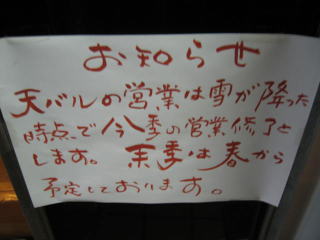 お知らせ
天バルの営業は雪が降った
時点で今季の営業修了と
します。 来季は春から
予定しております。